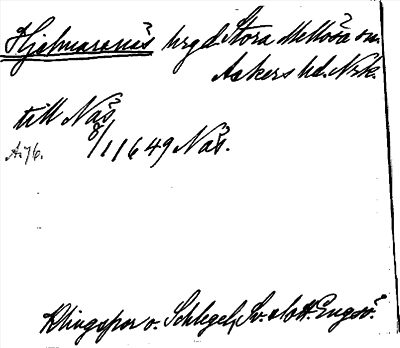 Hjelmarsnäs hrgd Stora Mellösa sn.
Askers hd. Nrk.
till Näs
A:76. 8/1 1649 Näs.
Klingspor o. Schlegel, Sv. slott. Engsö.